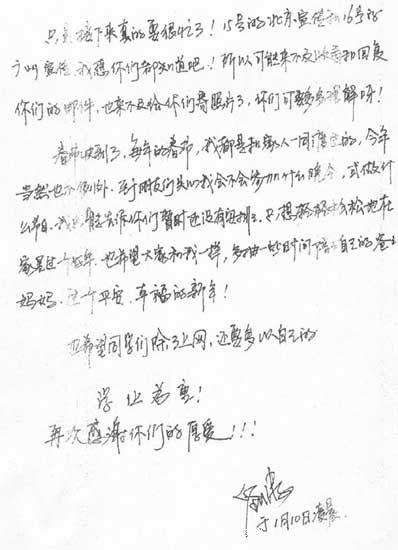 只是接下来真的要很忙了！15号的北京宣传和16号的
广州宣传，我想你们都知道吧！所以可能来不及收看和回复
你们的邮件，也来不及给你们寄照片了，你们可要多多理解呀！
春节快到了，每年的春节，我都是和家人一同度过的，今年
当然也不例外。至于朋友们关心我会不会参加什么晚会，或做什
么节目，我只能告诉你们暂时还没有安排，只想轻轻松松地在
家里过个好年。也希望大家和我一样，多抽一些时间陪陪自己的爸爸
妈妈，过个平安、幸福的新年！
也希望同学们除了上网，还要多以自己的
学业为重！
再次感谢你们的厚爱！！！
于1月10日凌晨.